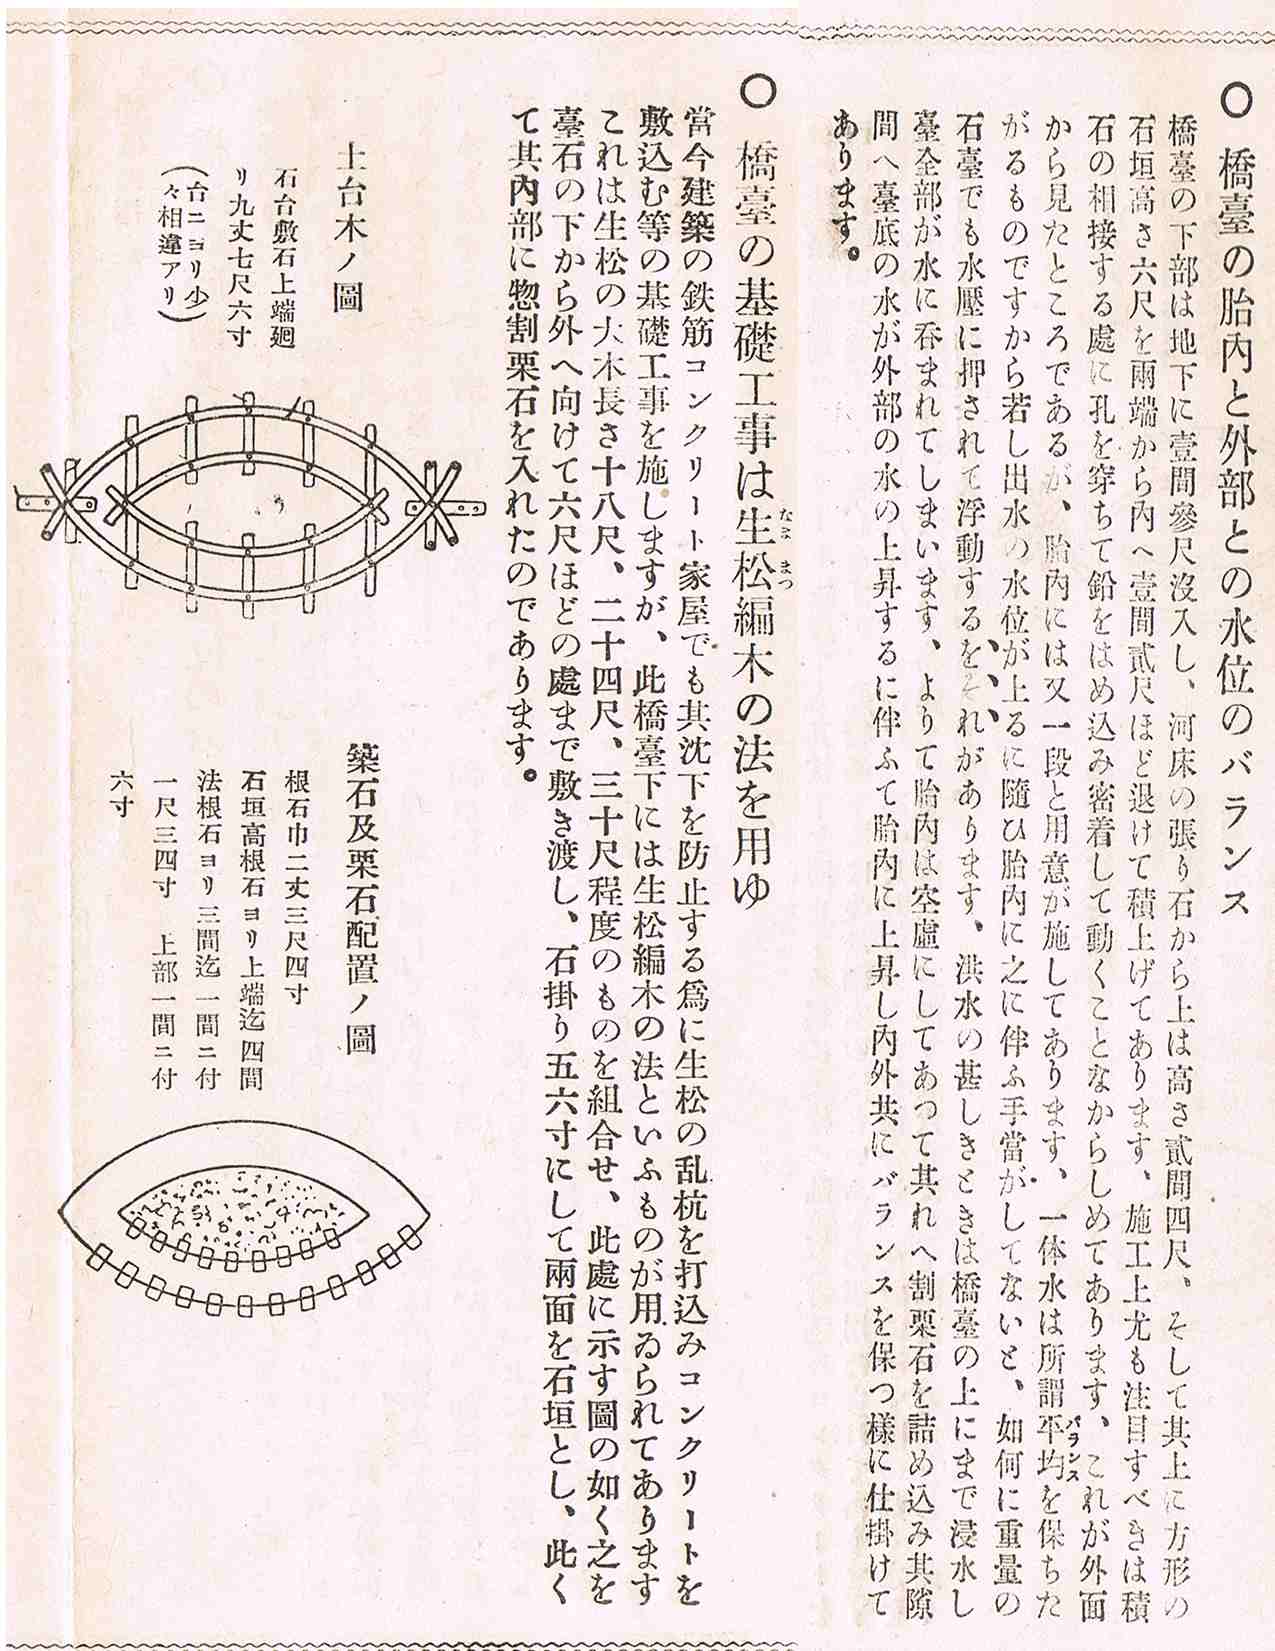 ○ 橋臺の胎內と外部との水位のバランス
橋臺の下部は地下に壹間參尺沒入し、河床の張り石から上は高さ貳間四尺、そして其上に方形の
石垣高さ六尺を兩端から內へ壹間貳尺ほど退けて積上げてあります、施工上尤も注目すべきは積
石の相接する處に孔を穿ちて鉛をはめ込み密着して動くことなからしめてあります、これが外面
から見たところであるが、胎內には又一段と用意が施してあります、一体水は所謂平均を保ちた
バランス
がるものですから若し出水の水位が上るに隨ひ胎內に之に伴ふ手當がしてないと、如何に重量の
石臺でも水壓に押されて浮動するをそれがあります、洪水の甚しきときは橋臺の上にまで浸水し
臺全部が水に呑まれてしまいます、よりて胎內は空虛にしてあつて其れへ割栗石を詰め込み其隙
間へ臺底の水が外部の水の上昇するに伴ふて胎內に上昇し內外共にバランスを保つ樣に仕掛けて
あります。
○ 橋臺の基礎工事は生松編木の法を用ゆ
なま まつ
當今建築の鉄筋コンクリート家屋でも其沈下を防止する爲に生松の乱杭を打込みコンクリートを
敷込む等の基礎工事を施しますが、此橋臺下には生松編木の法といふものが用ゐられてあります
これは生松の大木長さ十八尺、二十四尺、三十尺程度のものを組合せ、此處に示す圖の如く之を
臺石の下から外へ向けて六尺ほどの處まで敷き渡し、石掛り五六寸にして兩面を石垣とし、此く
て其內部に惣割栗石を入れたのであります。
土台木ノ圖
石台敷石上端廻
リ九丈七尺六寸
(台ニヨリ少)
(々相違アリ)
築石及栗石配置ノ圖
根石巾二丈三尺四寸
石垣高根石ヨリ上端迄四間
法根石ヨリ三間迄一間ニ付
一尺三四寸 上部一間ニ付
六寸